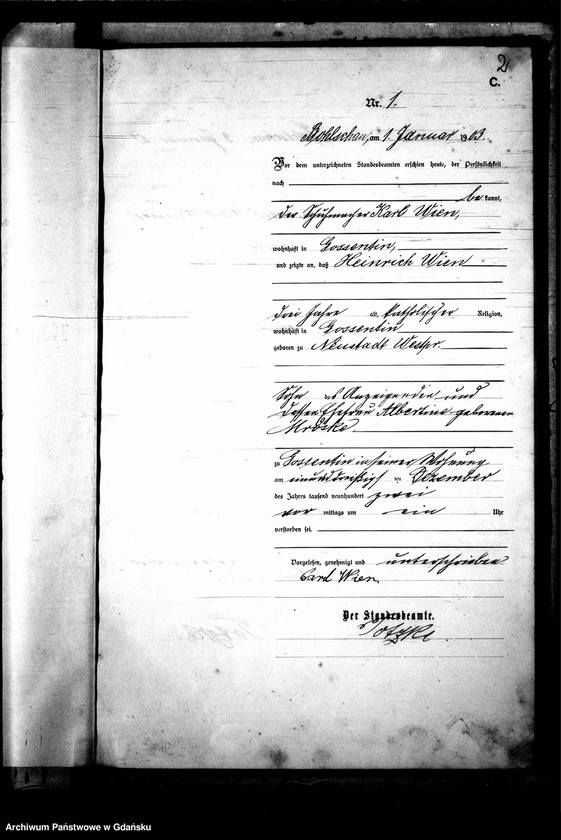 2
C.
Nr. 1.
Bohlschau, am 1. Januar 1903.
Vor dem unterzeichneten Standesbeamten erschien heute, der Persönlichkeit
nach
be kannt,
der Schuhmacher Karl Wien,
wohnhaft in Gossentin,
und zeigte an, daß Heinrich Wien
drei Jahre alt, katholischer Religion,
wohnhaft in Gossentin
geboren zu Neustadt Westpr.
Sohn des Anzeigenden und
dessen Ehefrau Albertine geborenen
Mroske
zu Gossentin in seiner Wohnung
am einunddreißigsten Dezember
des Jahres tausend neunhundert zwei
vor mittags um ein Uhr
verstorben sei.
Vorgelesen, genehmigt und unterschrieben
Carl Wien
Der Standesbeamte.
Archiwum Państwowe w Gdańsku